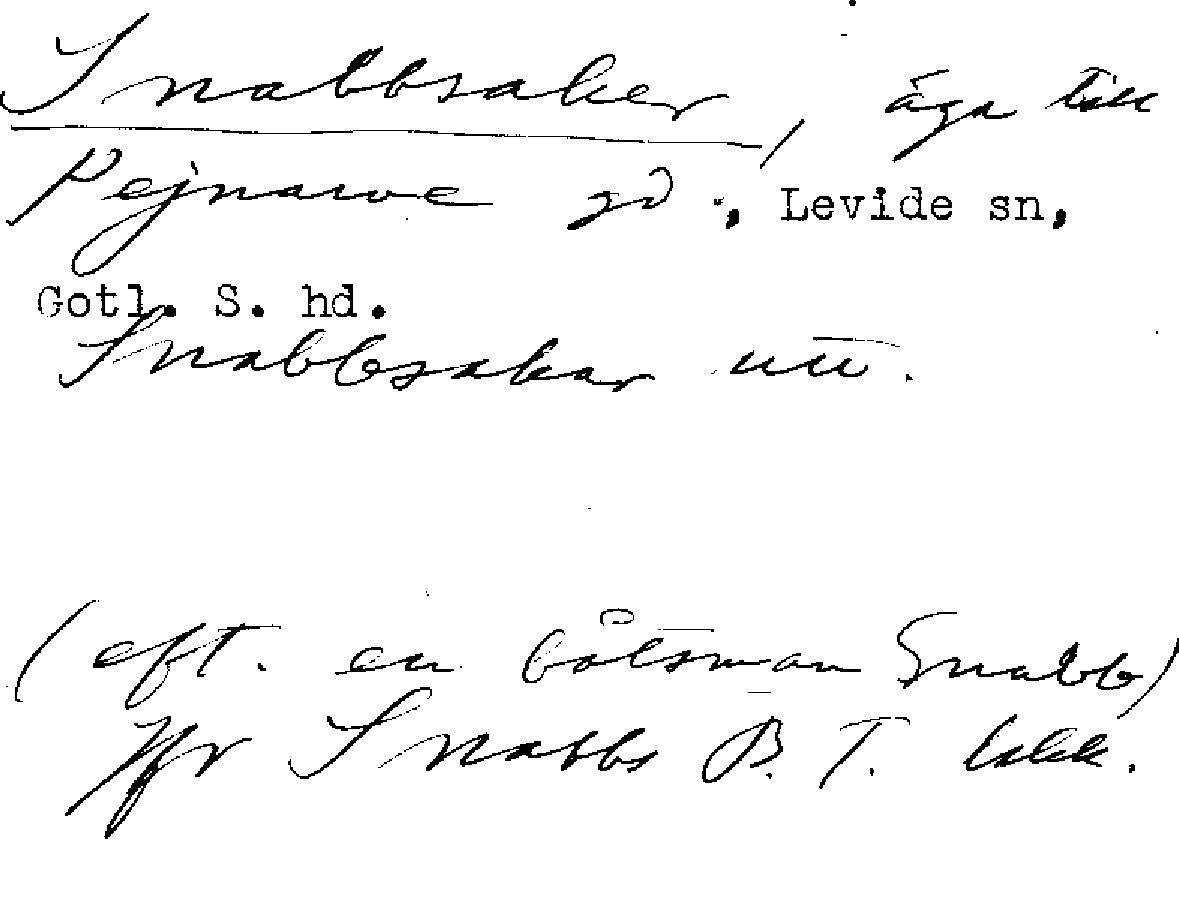 Snabbsaker, äga till
Pejnarve gd., Levide sn,
Gotl. S. hd.
Snabbsakar utt.
(eft. en båtsman Snabb)
Jfr Snabbs B. T.